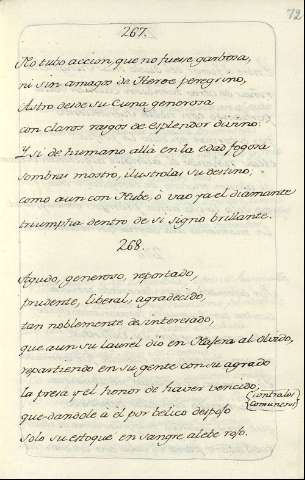 72
267.
No tubo accion, que no fuese garbosa,
ni sin amagos de Heroe peregrino,
Astro desde su Cuna generosa
con claros rasgos de esplendor divino.
Y si de humano allá en la edad fogosa
sombras mostro, ilustrolas su destino,
como aun con Nube, ò vao ya el diamante
triumpha dentro de si signo brillante.
268.
Agudo, generoso, reportado,
prudente, liberal, agradecido,
tan noblemente desinteresado,
que aun su laurel dio en al olvido,
repartiendo en su gente con su agrado
la presa y el honor de haver vencido,
quedandole à el por belico despojo
solo su estoque en sangre aleve rojo.
(contra los
Comuneros)